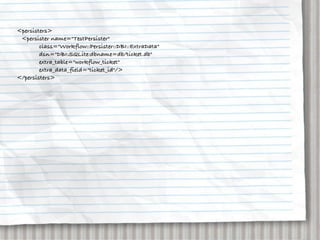 <persisters>
<persister name="TestPersister"
class="Workflow::Persister::DBI::ExtraData"
dsn="DBI:SQLite:dbname=db/ticket.db"
extra_table="workflow_ticket"
extra_data_field="ticket_id"/>
</persisters>